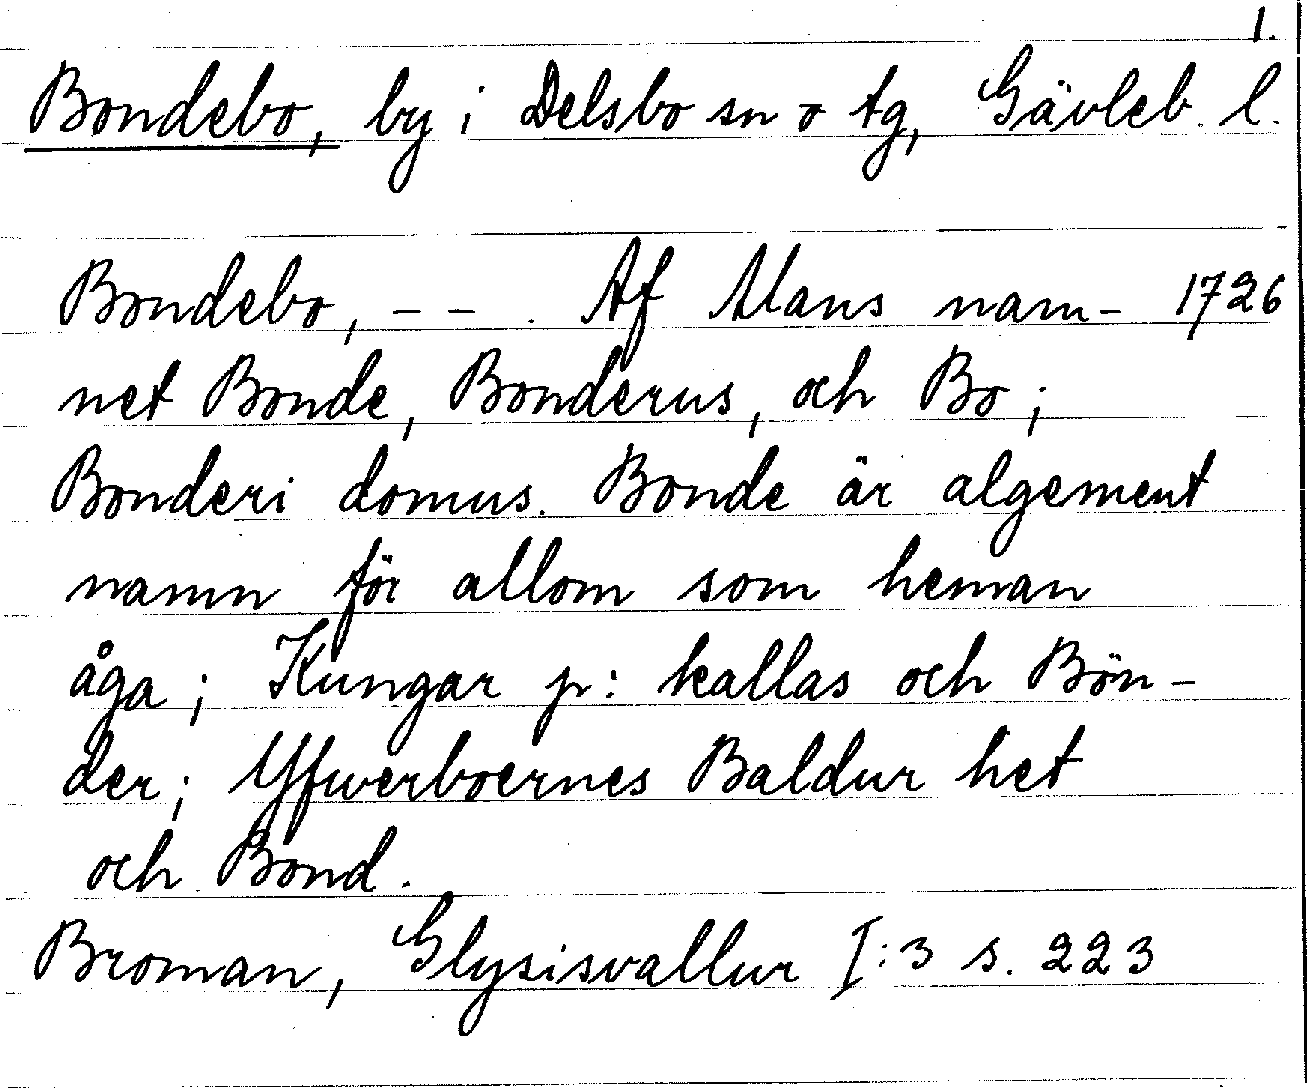 1.
Bondebo, by i Delsbo sn o tg, Gävleb. l.
Bondebo, – – . Af Mans nam- 1726
net Bonde, Bonderus, och Bo ;
Bonderi domus. Bonde är algement
namn för allom som heman
åga ; Kungar p: kallas och Bön-
der ; Yfwerboernes Baldur het
och Bond.
Broman, Glysisvallur I:3 s. 223